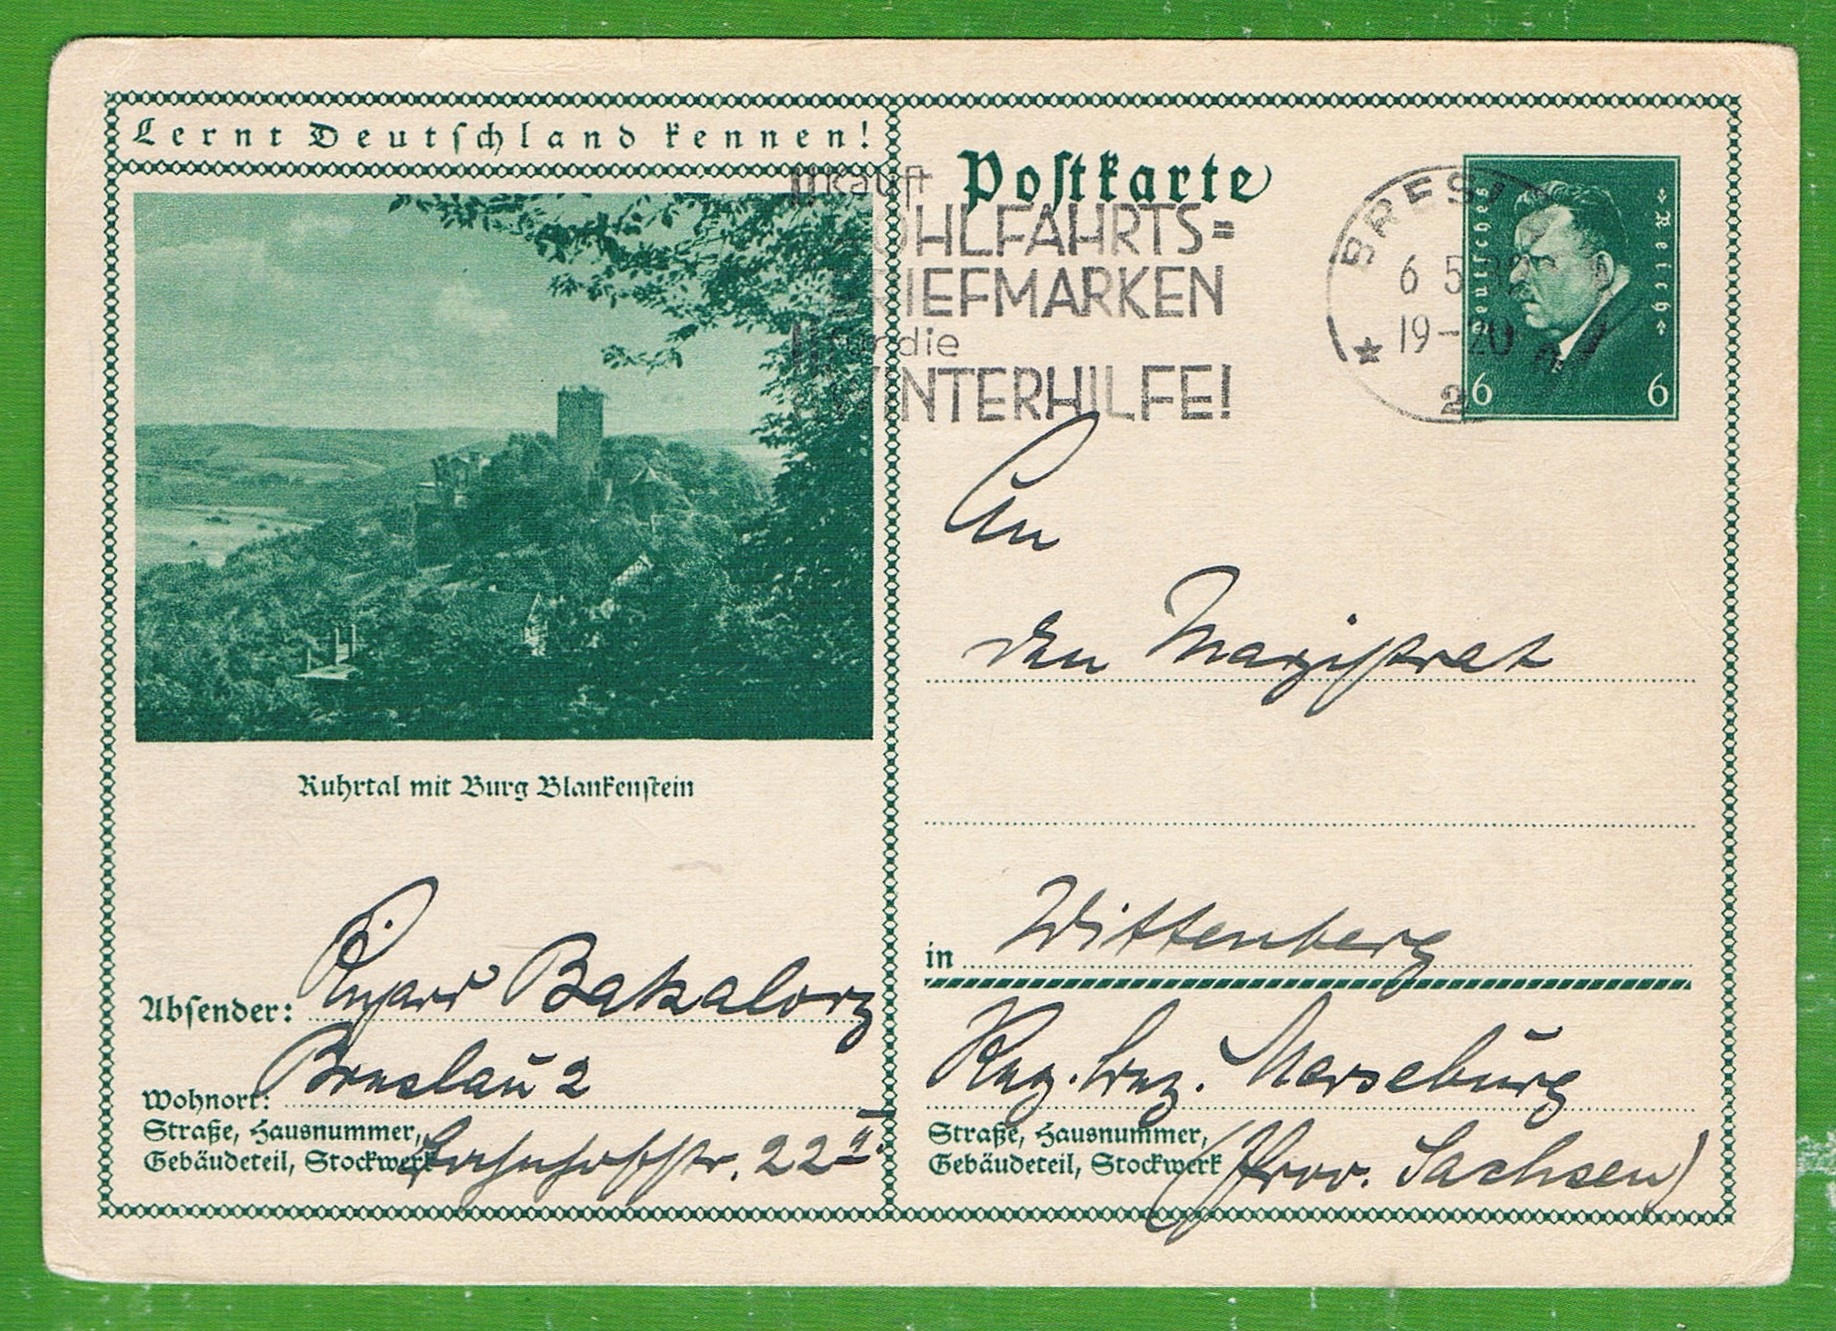 Lernt Deutschland kennen!
Ruhrtal mit Burg Blankenstein
Absender: Bakalorz
Wohnort: Breslau 2
Straße, Hausnummer,
Gebäudeteil, Stockwerk Bahnhofstr. 22 II
Postkarte
Kauft
WOHLFAHRTS=
BRIEFMARKEN
für die
WINTERHILFE!
BRESLAU
6 5 32
19-20
2
Deutsches Reich
6 6
An
den Magistrat
in Wittenberg
Reg. Bez. Merseburg
Straße, Hausnummer,
Gebäudeteil, Stockwerk (Prov. Sachsen)